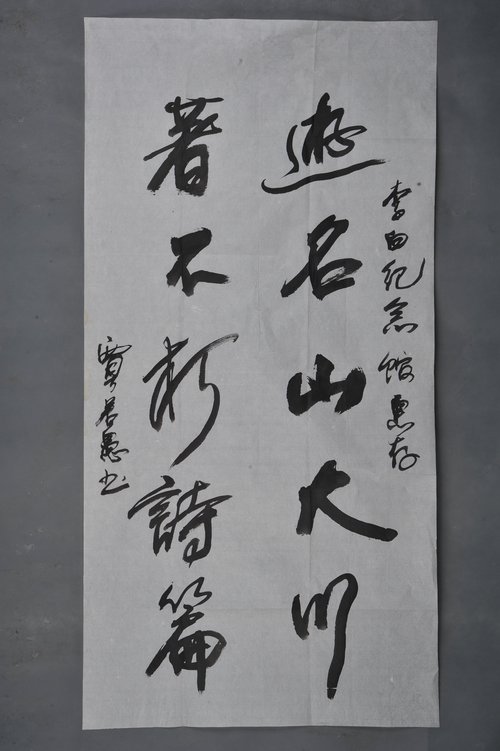 李白纪念馆惠存
遊名山大川
著不朽詩篇
賈若愚书